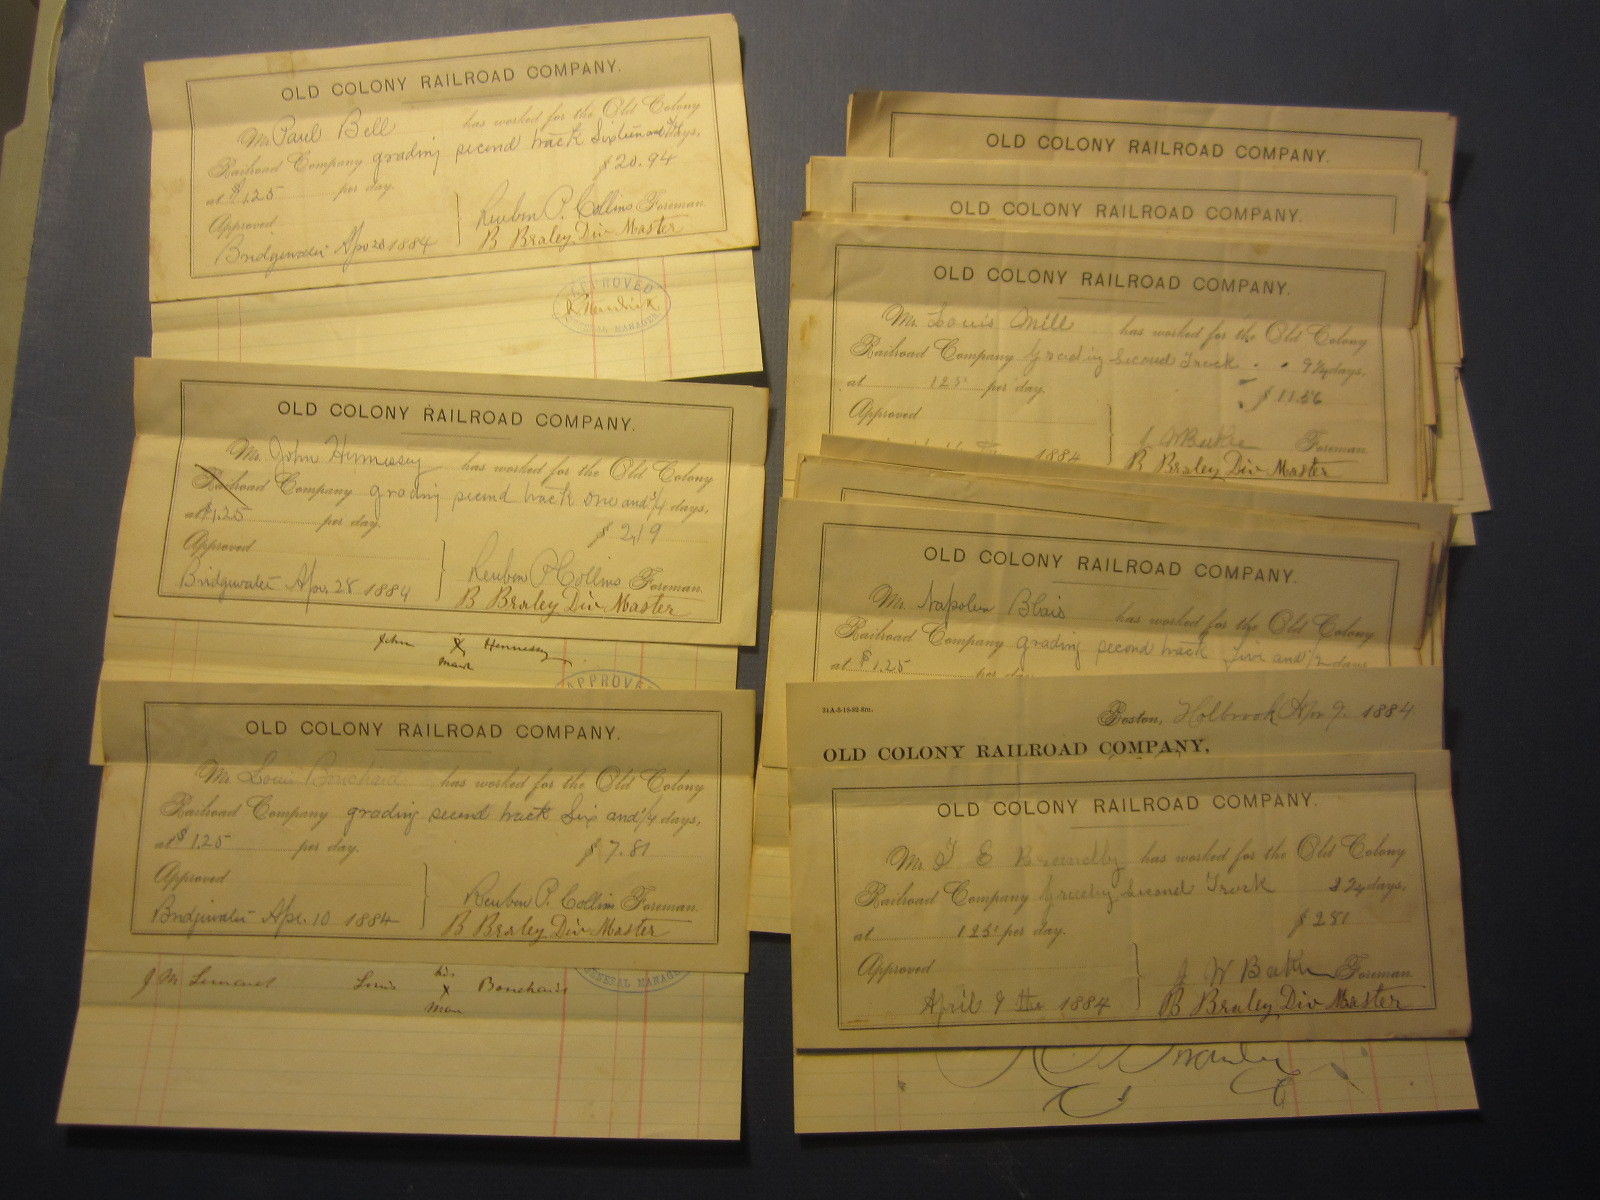 OLD COLONY RAILROAD COMPANY.
Mr. Paul Bell has worked for the Old Colony
Railroad Company grading second track Sixteen and 3/4 days,
at $1.25 per day. $20.94
Approved
Reuben P. Collins Foreman.
Bridgewater Apr 28 1884 B Braley Div Master
APPROVED
GENERAL MANAGER
OLD COLONY RAILROAD COMPANY.
Mr. John Hennessey has worked for the Old Colony
Railroad Company grading second track one and 3/4 days,
at $1.25 per day. $2.19
Approved
Reuben P. Collins Foreman.
Bridgewater Apr. 28 1884 B Braley Div Master
John X Hennessey
mark
APPROVED
OLD COLONY RAILROAD COMPANY.
Mr. Louis Bouchard has worked for the Old Colony
Railroad Company grading second track Six and 1/4 days,
at $1.25 per day. $7.81
Approved
Reuben P. Collins Foreman.
Bridgewater Apr. 10 1884 B Braley Div Master
GENERAL MANAGER
his
Louis X
OLD COLONY RAILROAD COMPANY.
OLD COLONY RAILROAD COMPANY.
OLD COLONY RAILROAD COMPANY.
Mr. Louis has worked for the Old Colony
Railroad Company Grading Second Track 9 1/4 days,
at 125 per day. $11.56
Approved
Foreman.
1884 B Braley Div Master
OLD COLONY RAILROAD COMPANY.
Mr. Napoleon Blais has worked for the Old Colony
Railroad Company grading second track five and 1/2 days
at $1.25 per day
31A-8-18-82-8m.
Boston, Holbrook Apr 9 1884
OLD COLONY RAILROAD COMPANY,
OLD COLONY RAILROAD COMPANY.
Mr. has worked for the Old Colony
Railroad Company Second Track 2 1/4 days,
at 125 per day. $2.81
Approved
J W Foreman.
April 9 the 1884 B Braley Div Master